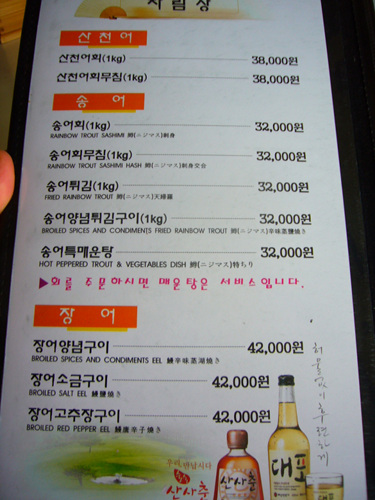 차림상
산천어
산천어회(1kg) 38,000원
산천어회무침(1kg) 38,000원
송 어
송어회(1kg) 32,000원
RAINBOW TROUT SASHIMI 鱒(ニジマス)刺身
송어회무침(1kg) 32,000원
RAINBOW TROUT SASHIMI HASH 鱒(ニジマス)刺身交合
송어튀김(1kg) 32,000원
FRIED RAINBOW TROUT 鱒(ニジマス)天婦羅
송어양념튀김구이(1kg) 32,000원
BROILED SPICES AND CONDIMENTS FRIED RAINBOW TROUT 鱒(ニジマス)辛味蒸鹽燒き
송어특매운탕 32,000원
HOT PEPPERED TROUT & VEGETABLES DISH 鱒(ニジマス)特ちり
▶회를 주문하시면 매운탕은 서비스입니다.
장 어
장어양념구이 42,000원
BROILED SPICES AND CONDIMENTS EEL 鰻辛味蒸湖燒き
장어소금구이 42,000원
BROILED SALT EEL 鰻鹽燒き
장어고추장구이 42,000원
BROILED RED PEPPER EEL 鰻唐辛子燒き
허물없이 후련하게
우리 만납시다
산사춘
산사춘
대포